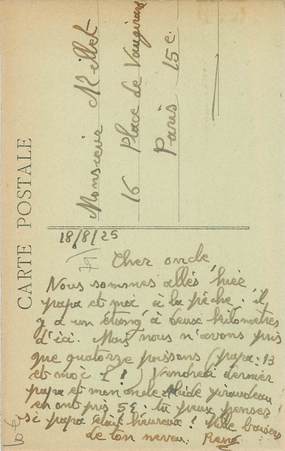 CARTE POSTALE
Monsieur Millet
16 Place de Vaugirard
Paris 15e.
18/8/25
Cher oncle,
Nous sommes allés hier
papa et moi à la pêche. il
y a un étang à deux kilomètres
d'ici. Mais nous n'avons pris
que quatorze poissons (papa: 13
et moi 1! Vendredi dernier
papa et mon oncle
en ont pris 58. tu peux penser
si papa était heureux! Mille baisers
de ton neveu. René